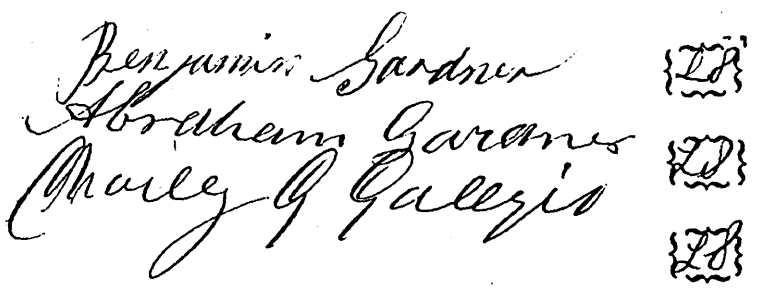 Benjamin Gardner LS
Abraham Gardner LS
Charley G LS